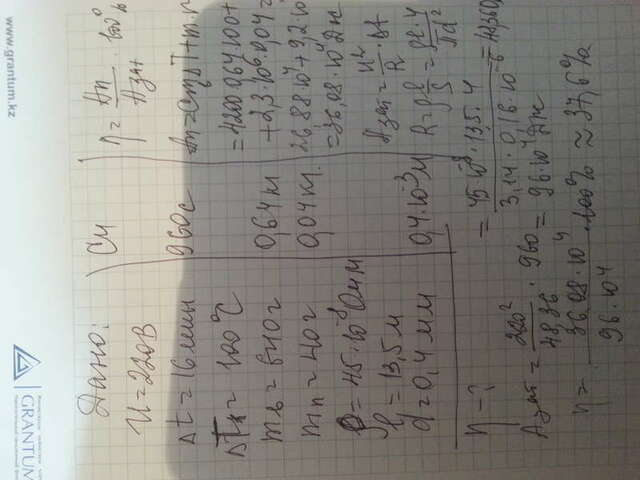 www.grantum.kz
GRANTUM
Дано:
U = 220В
Δt = 16 мин
ΔT = 100°C
mв = 640г
mп = 40г
ρ = 45·10⁻⁸ Ом м
l = 13,5 м
d = 0,4 мм
η - ?
СИ
960с
0,64 кг
0,04 кг
0,4·10⁻³ м
η = Aп / Aзат · 100%
= 4200·0,64·100+
+2,3·10⁶·0,04 =
= 36,08·10⁴ Дж
Aзат = U² / R · Δt
R = ρ l / S = ρl·4 / πd²
= 45·10⁻⁸·13,5·4 / 3,14·0,16·10⁻⁶
Aзат = 220² / 48,36 · 960 = 96·10⁴ Дж
η = 36,08·10⁴ / 96·10⁴ · 100% ≈ 37,6%